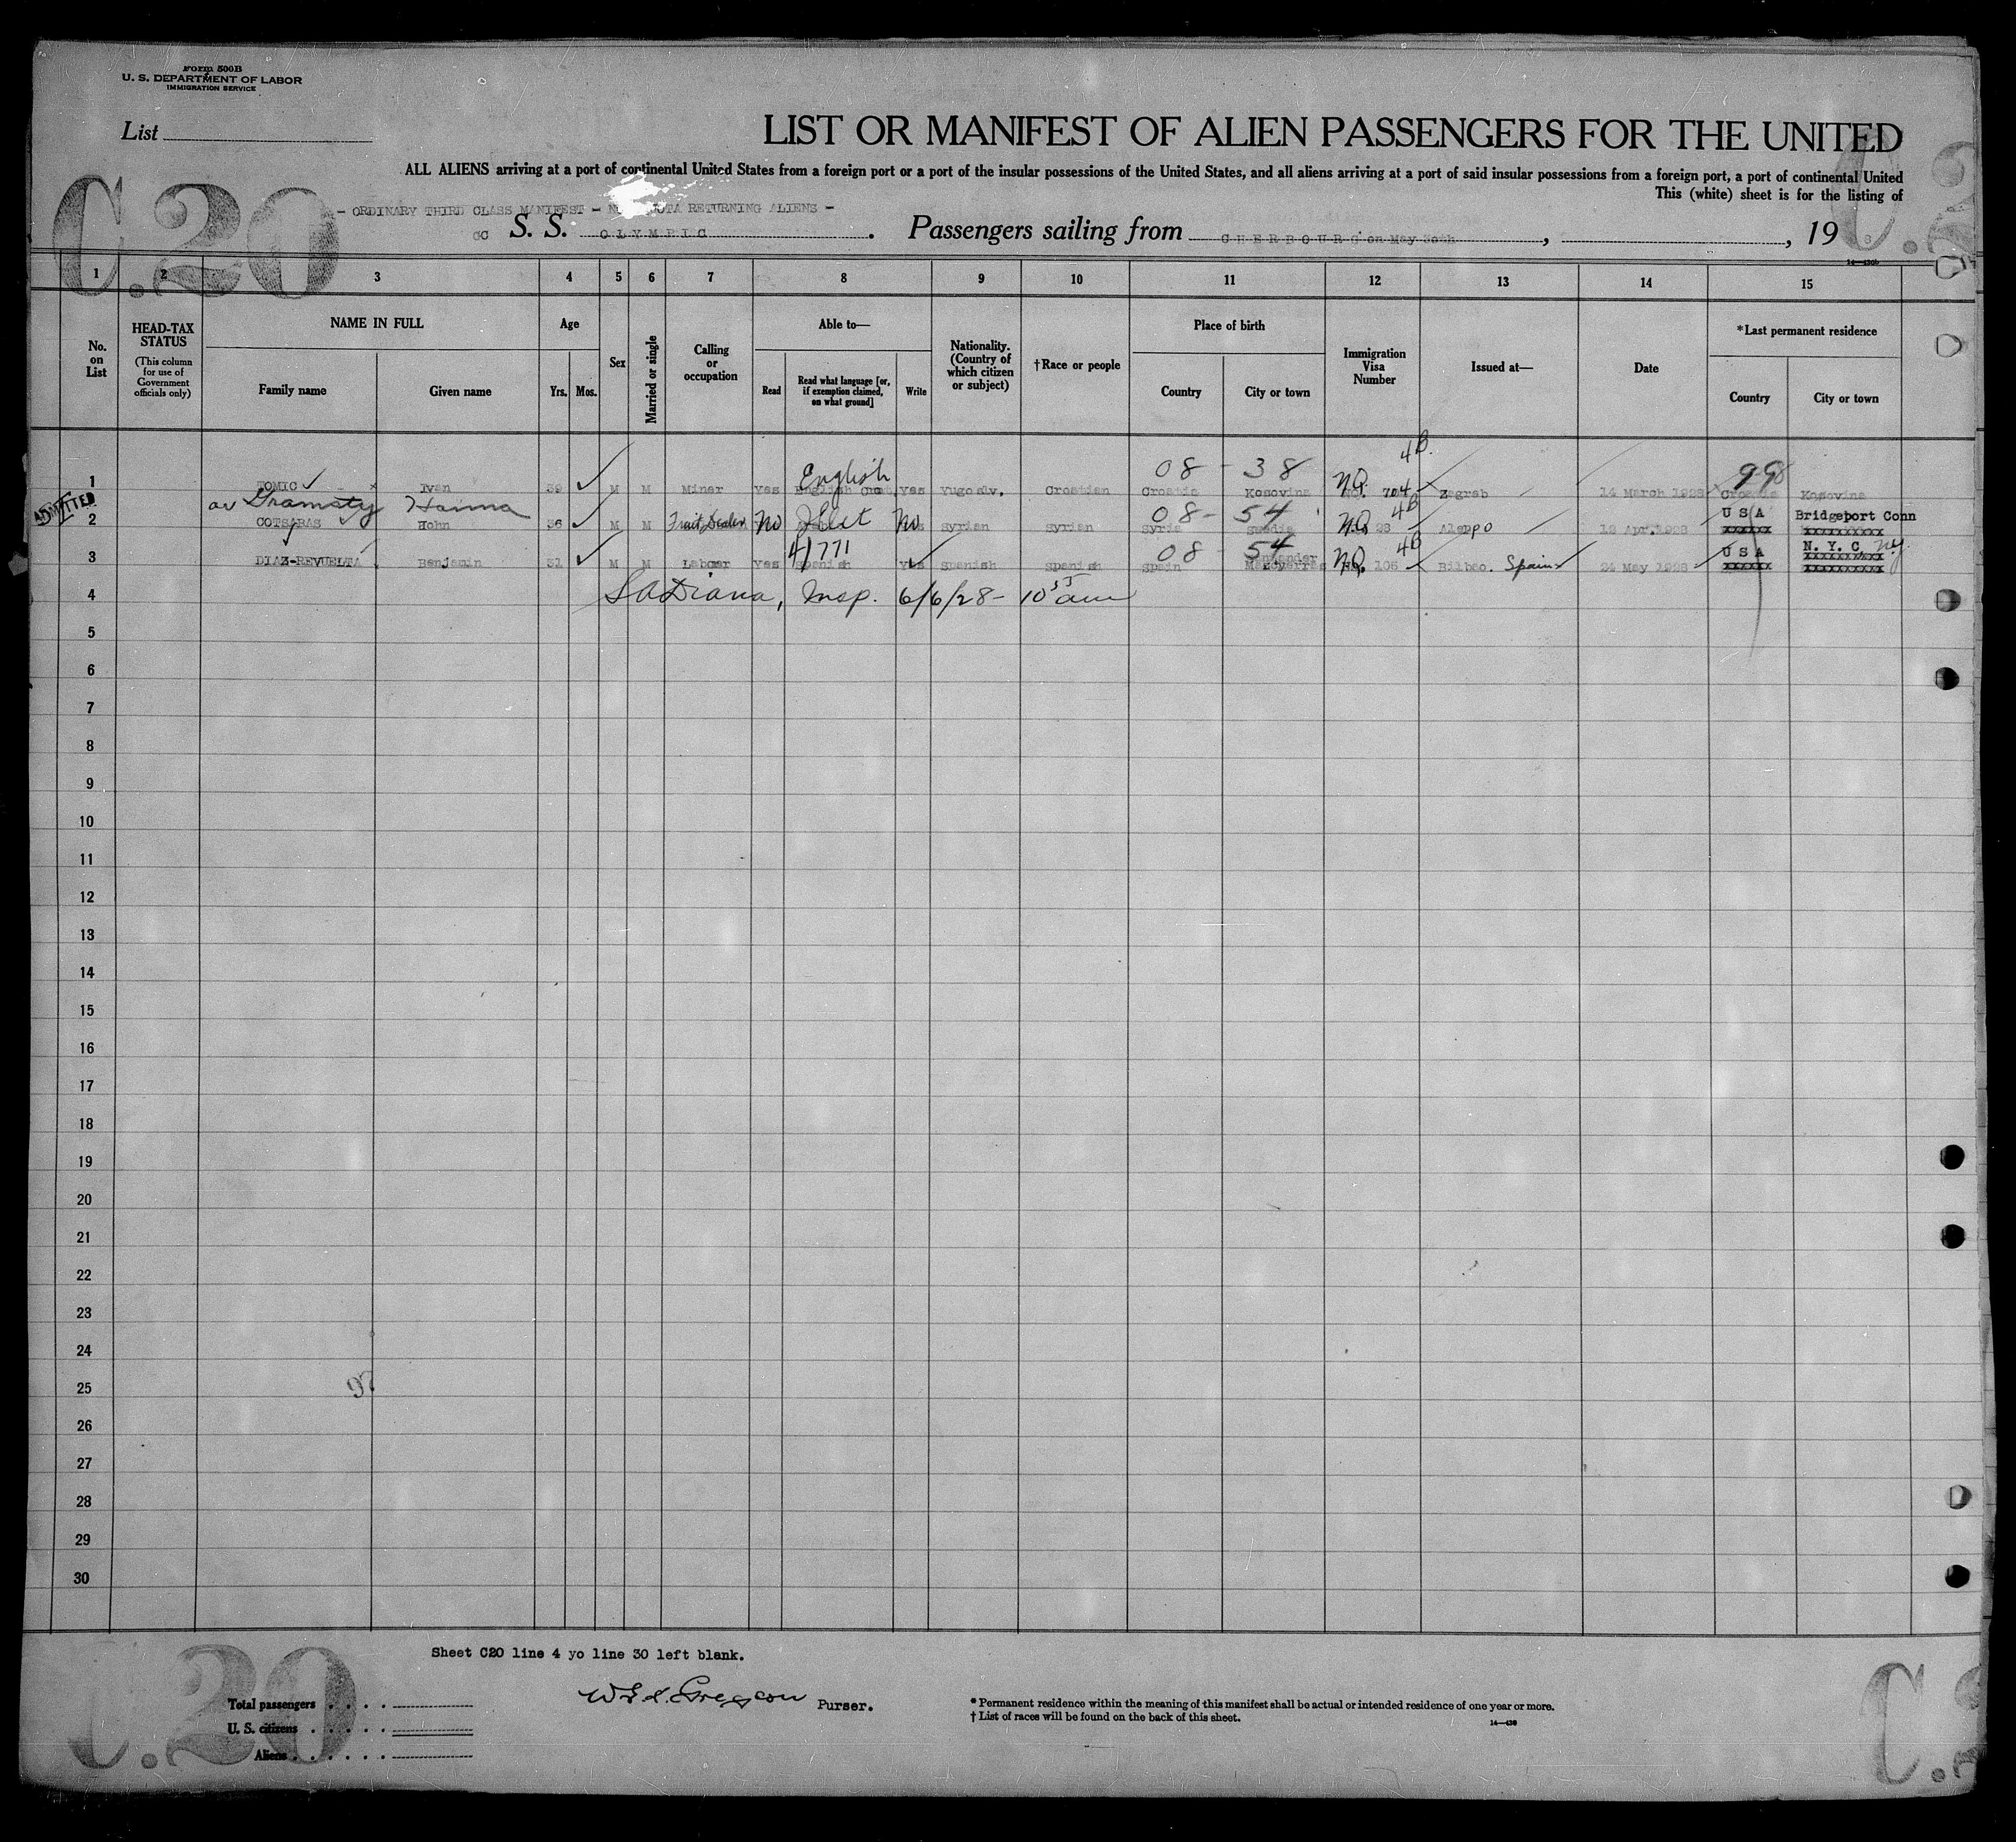 Form 500B
U. S. DEPARTMENT OF LABOR
IMMIGRATION SERVICE
List
LIST OR MANIFEST OF ALIEN PASSENGERS FOR THE UNITED
ALL ALIENS arriving at a port of continental United States from a foreign port or a port of the insular possessions of the United States, and all aliens arriving at a port of said insular possessions from a foreign port, a port of continental United
This (white) sheet is for the listing of
C.20
C.2
- ORDINARY THIRD CLASS MANIFEST - N QUOTA RETURNING ALIENS -
GC S. S. OLYMPIC. Passengers sailing from CHERBOURG on May 30th, , 19 8
14—430b
1 2 3 4 5 6 7 8 9 10 11 12 13 14 15
No. on List
HEAD-TAX STATUS
(This column for use of Government officials only)
NAME IN FULL
Family name
Given name
Age
Yrs. Mos.
Sex
Married or single
Calling or occupation
Able to—
Read
Read what language [or, if exemption claimed, on what ground]
Write
Nationality. (Country of which citizen or subject)
†Race or people
Place of birth
Country
City or town
Immigration Visa Number
Issued at—
Date
*Last permanent residence
Country
City or town
English 08 - 38 NQ 4B. 99
1 TOMIC Ivan 39 M M Miner Yes English Yes Yugoslv. Croatian Croatia Kosovina No. 704 Zagreb 14 March 1928 Croatia Kosovina
ADMITTED
or Gramaty Hanna 08 - 54 4B USA Bridgeport Conn
2 COTSARAS Hohn 36 M M Fruit Dealer No Illit No Syrian Syrian Syria Suedia NQ 28 Aleppo 18 Apr. 1928 xxxxxx xxxxxxxxxx
41771 08 - 54 4B USA N. Y. C. NY
3 DIAZ-REVUELTA Benjamin 31 M M Laborer Yes Spanish Yes Spanish Spanish Spain Santander NQ 105 Bilbao. Spain 24 May 1928 xxxxxx xxxxxxxxxx
4 SA Diana, Insp. 6/6/28 - 10 35 am
5
6
7
8
9
10
11
12
13
14
15
16
17
18
19
20
21
22
23
24
25
97
26
27
28
29
30
Sheet C20 line 4 yo line 30 left blank.
Purser.
C.20
C.2
Total passengers
U. S. citizens
Aliens
* Permanent residence within the meaning of this manifest shall be actual or intended residence of one year or more.
† List of races will be found on the back of this sheet.
14—430